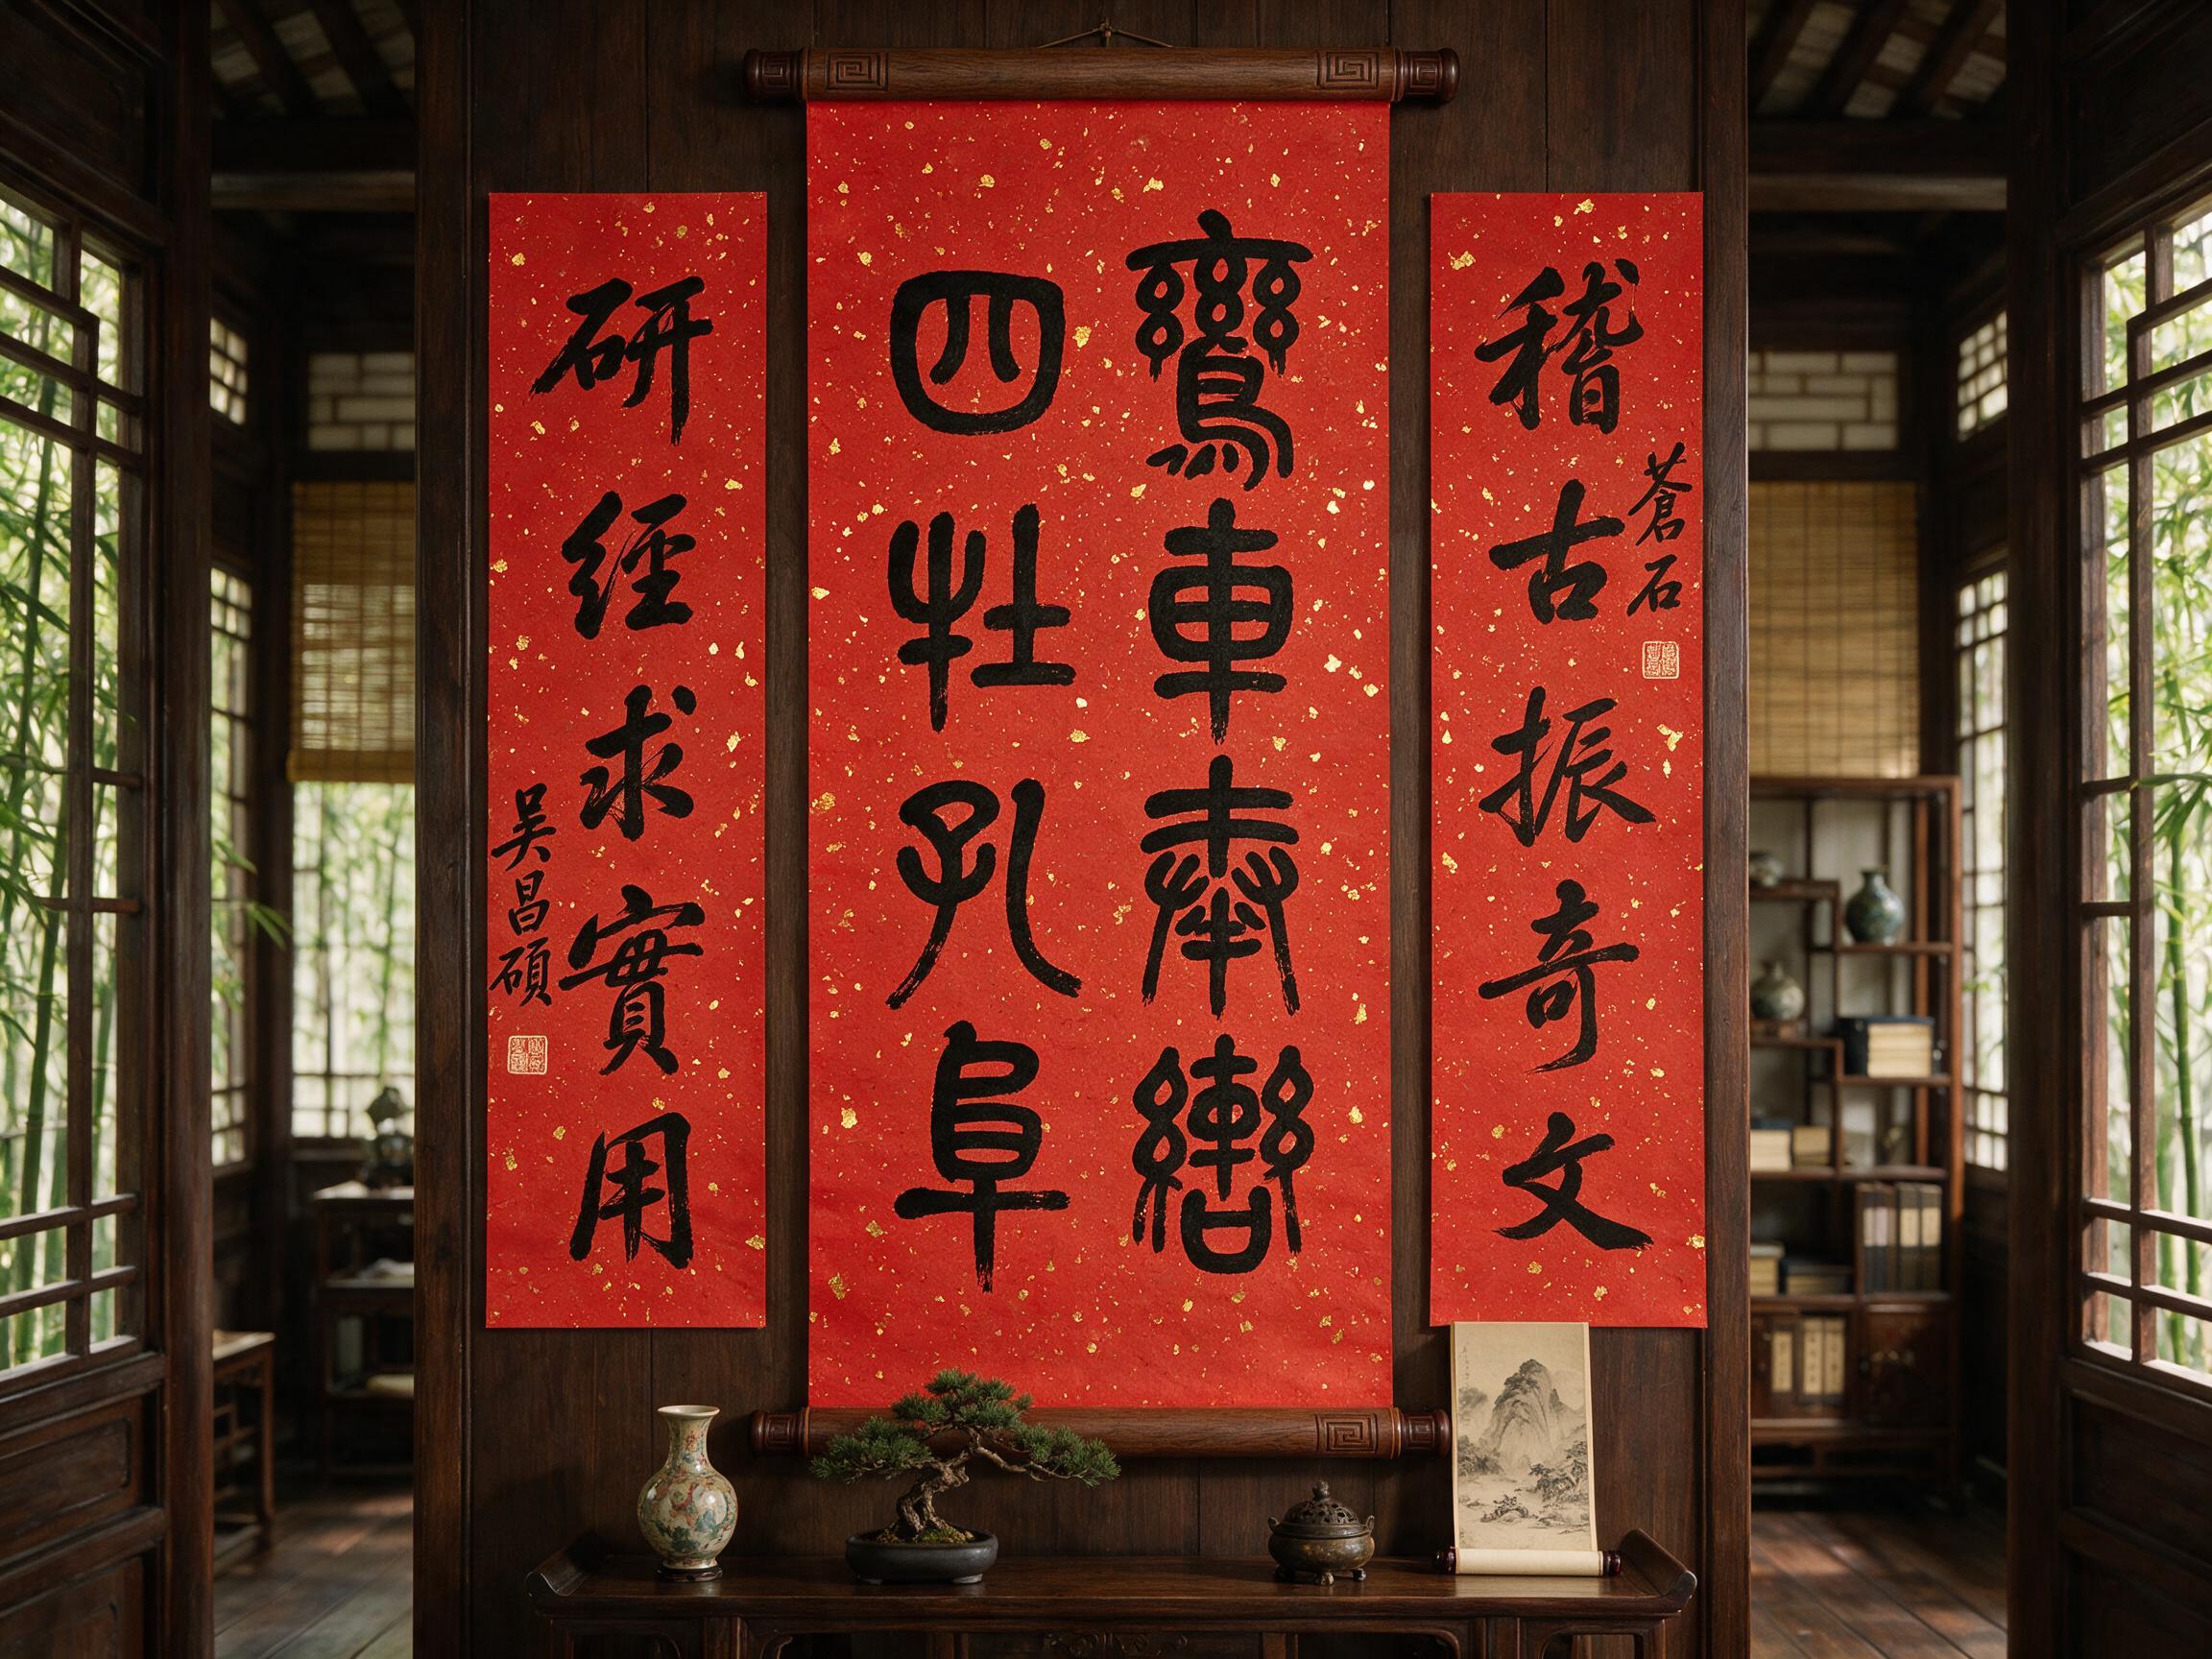 稽古振奇文
蒼石
鸞車奉轡
四牡孔阜
研經求實用
吳昌碩